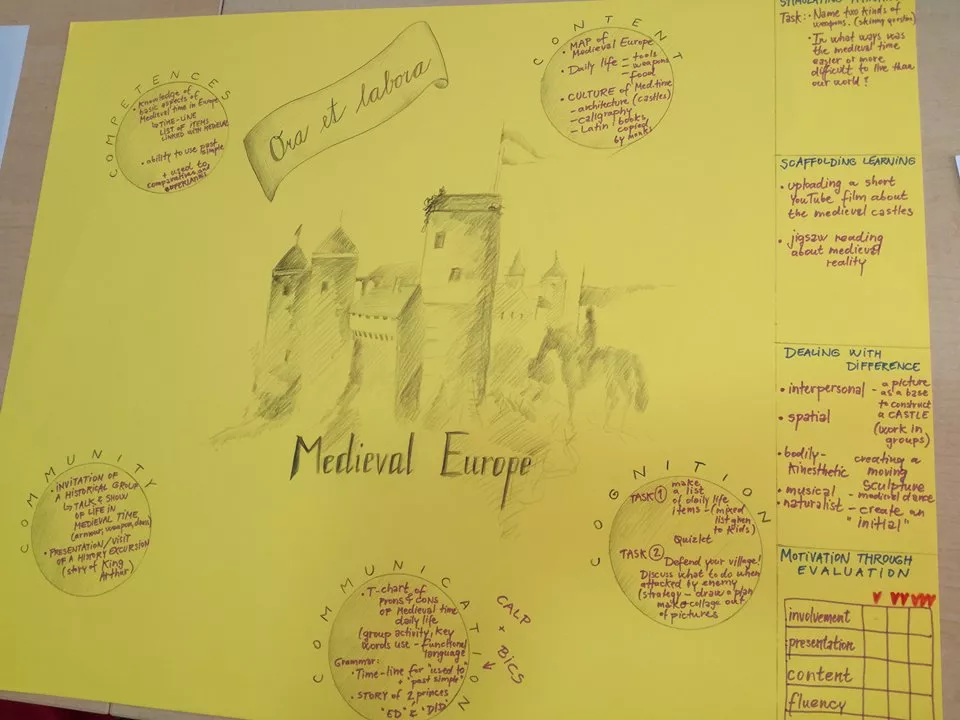 Ora et labora
Medieval Europe
COMPETENCES
• Knowledge of
basic aspects of
Medieval time in Europe
↳ TIME-LINE
LIST OF ITEMS
LINKED WITH MEDIEVAL
• ability to use past
simple
+ used to
comparatives and
superlatives
CONTENT
• MAP of
Medieval Europe
• Daily life – tools
– weapons
– food
• CULTURE of Med.time
– architecture (castles)
– calligraphy
– Latin / books
copied
by monks
COMMUNITY
• INVITATION OF
A HISTORICAL GROUP
↳ TALK & SHOW
OF LIFE IN
MEDIEVAL TIME
(armour, weapon, dance)
• PRESENTATION/VISIT
OF A HISTORY EXCURSION
(story of King
Arthur)
COMMUNICATION
• T-chart of
prons & cons
of Medieval time
daily life
(group activity, key
words use – functional
language)
Grammar:
• Time-line for "used to"
+ "past simple"
• STORY of 2 princes
"ED" & "DID"
CALP
+
BICS
COGNITION
TASK 1 make
a list
of daily life
items – (mixed
list given
to kids)
Quizlet
TASK 2
Defend your village!
Discuss what to do when
attacked by enemy
(strategy – draw a plan
make collage out
of pictures
Task: • Name two kinds of
weapons. (skinny question)
• In what ways was
the medieval time
easier or more
difficult to live than
our world?
SCAFFOLDING LEARNING
• uploading a short
YouTube film about
the medieval castles
• jigsaw reading
about medieval
reality
DEALING WITH
DIFFERENCE
• interpersonal – a picture
as a base
• spatial to construct
a CASTLE
(work in
groups)
• bodily- creating a
kinesthetic moving
sculpture
• musical – medieval dance
• naturalist – create an
"initial"
MOTIVATION THROUGH
EVALUATION
involvement
presentation
content
fluency